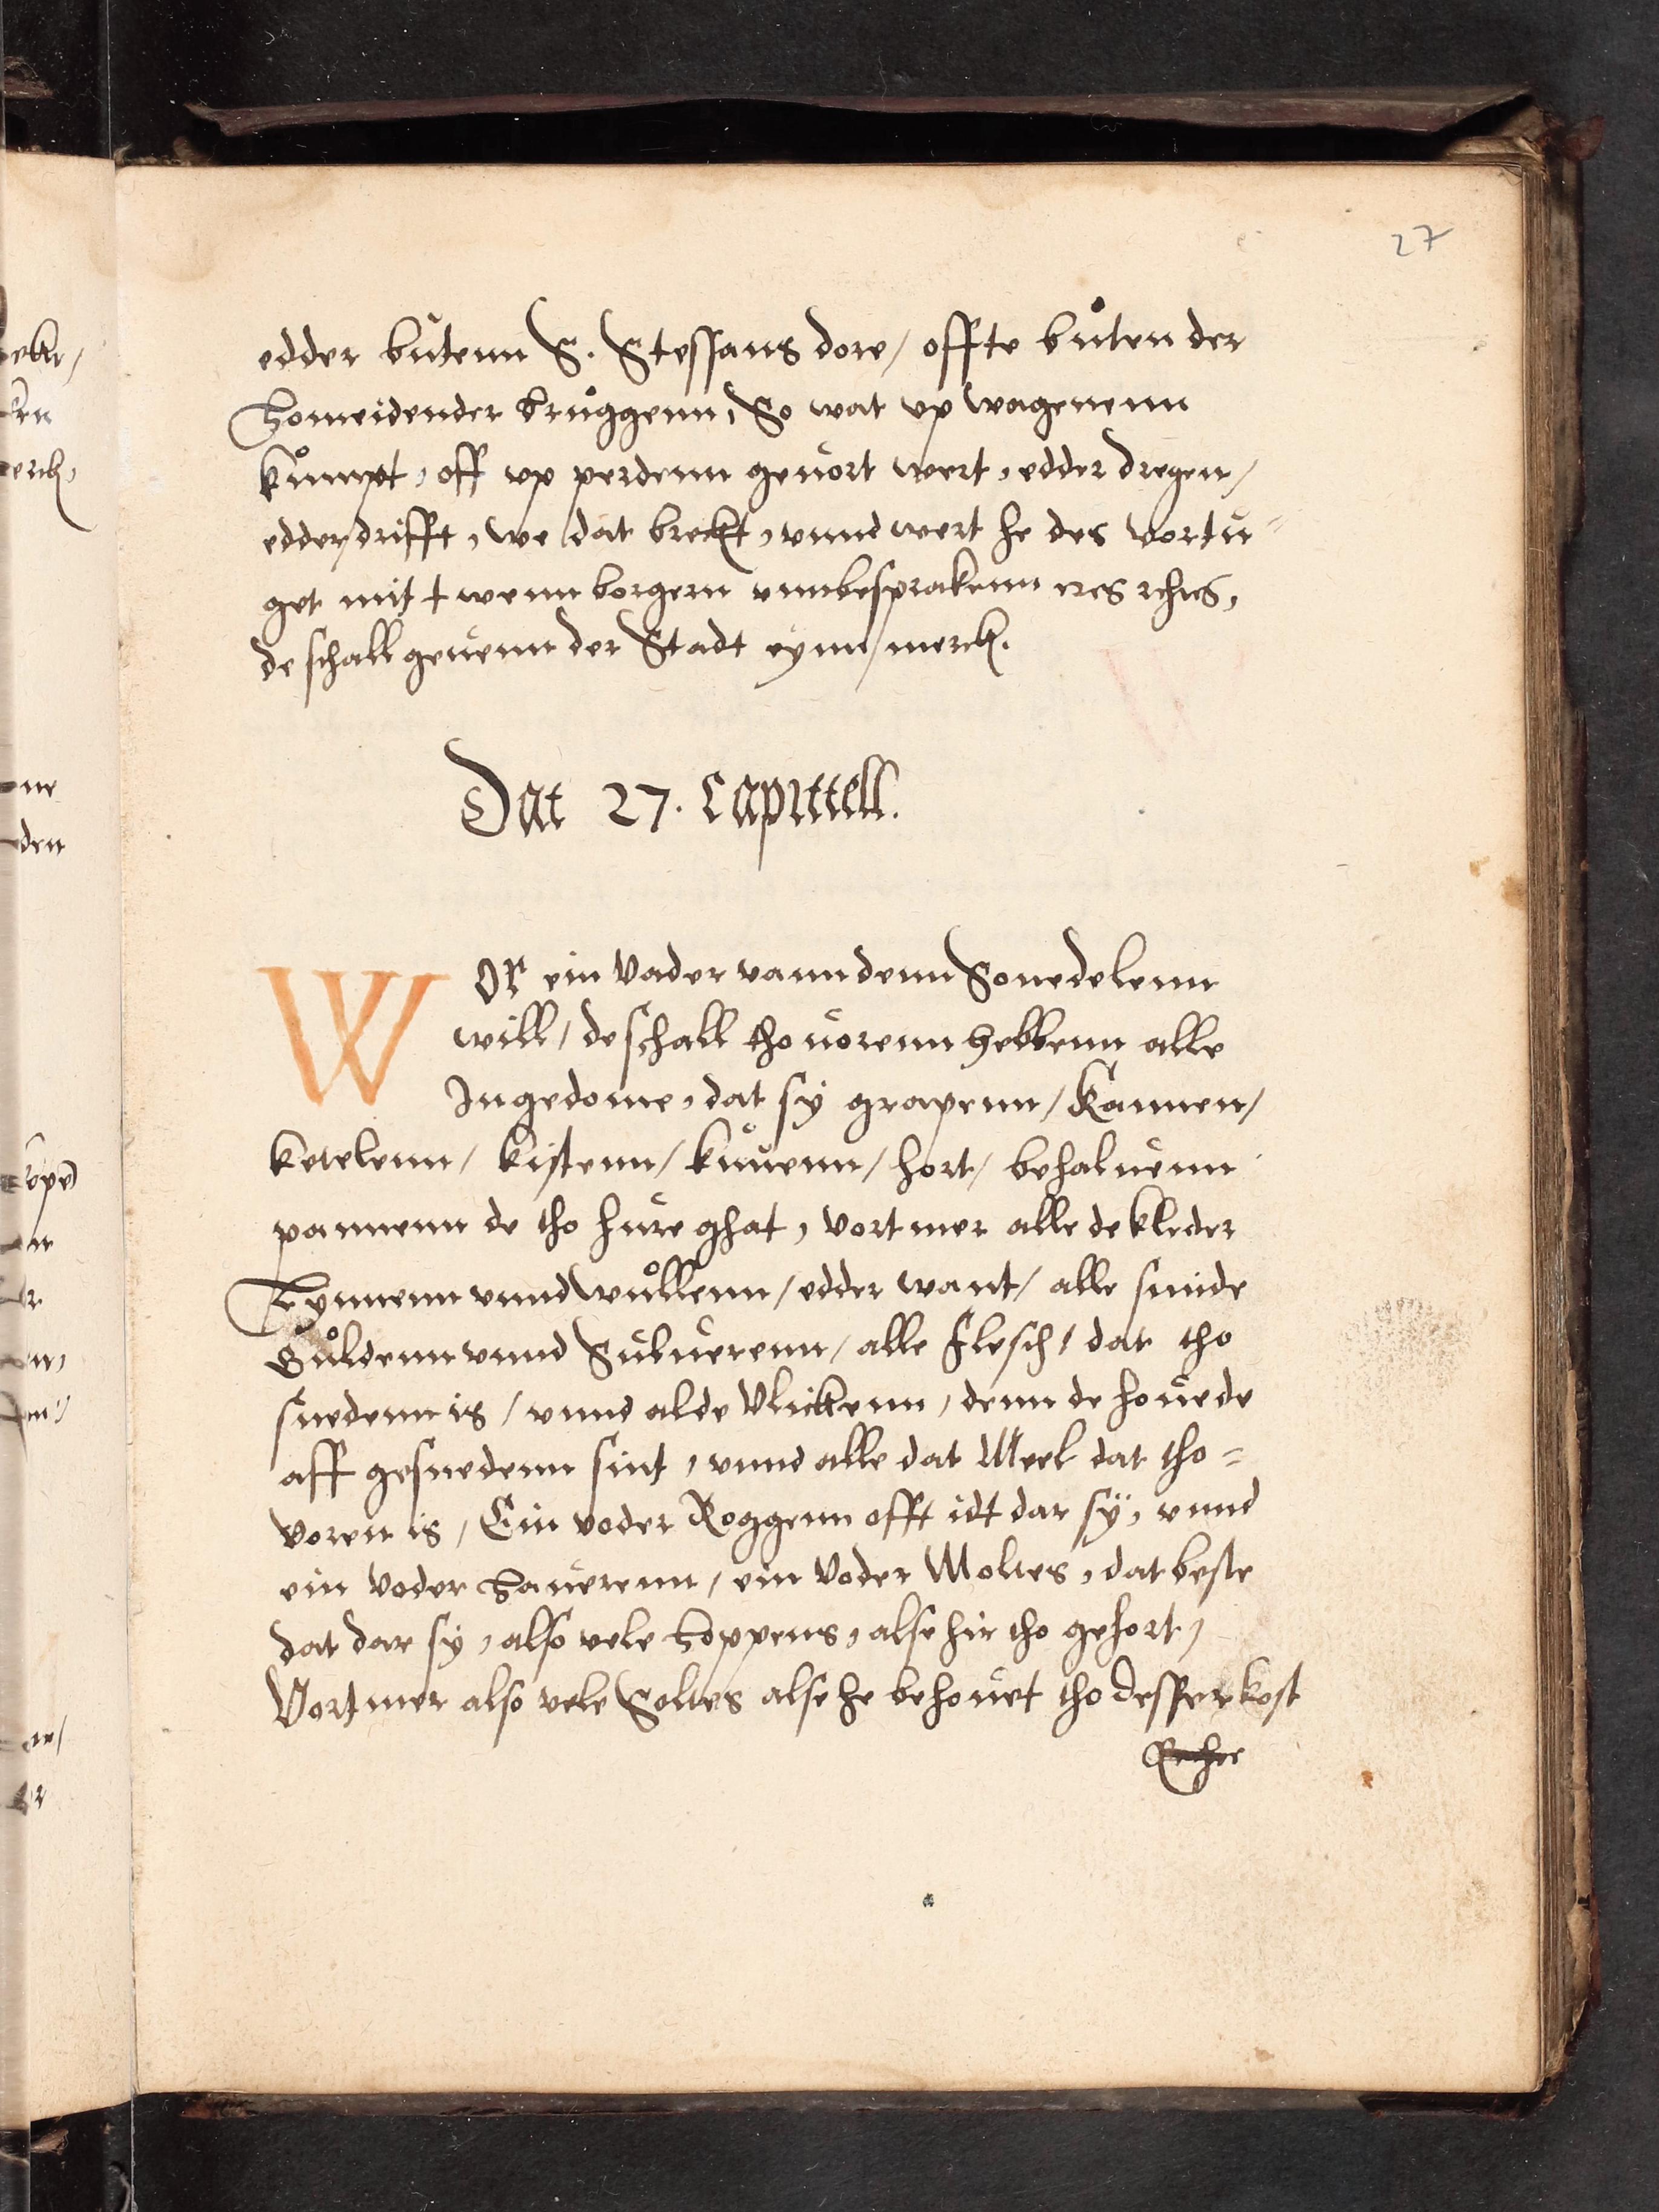 27
edder buten S. Steffans dore / offte buten der
Homeidender bruggenn, So wat vp wagenenn
kumpt, off vp perdenn geuort wert, edder dregen /
edder drifft, we dat breckt, vnnd wert he des vortu=
get mit twenn borgern vmbesprakenn eres rechtes,
de schall geuenn der Stadt eynn merck.
Dat 27. Capittell.
Wor ein Vader vann denn Sone delenn
will / de schall tho uorenn hebbenn alle
Ingedome, dat sy grapenn / Kannen /
ketelenn / kistenn / kuuenn / hort / behaluenn
pannenn de tho hure ghat, vort mer alle de kleder
Lynnenn vnnd wullenn / edder want / alle smide
Guldenn vnnd Suluerenn / alle flesch / dat tho
snedenn is / vnnd alde Vlickenn / denn de houede
aff gesnedenn sint, vnnd alle dat Meel dat tho=
voren is / Ein voder Roggenn offt idt dar sy, vnnd
ein voder Hauerenn / ein Voder Moltes, dat beste
dat dar sy, also vele Hoppens, alse hir tho gehort,
Vort mer also vele Soltes alse he behouet tho desser kost